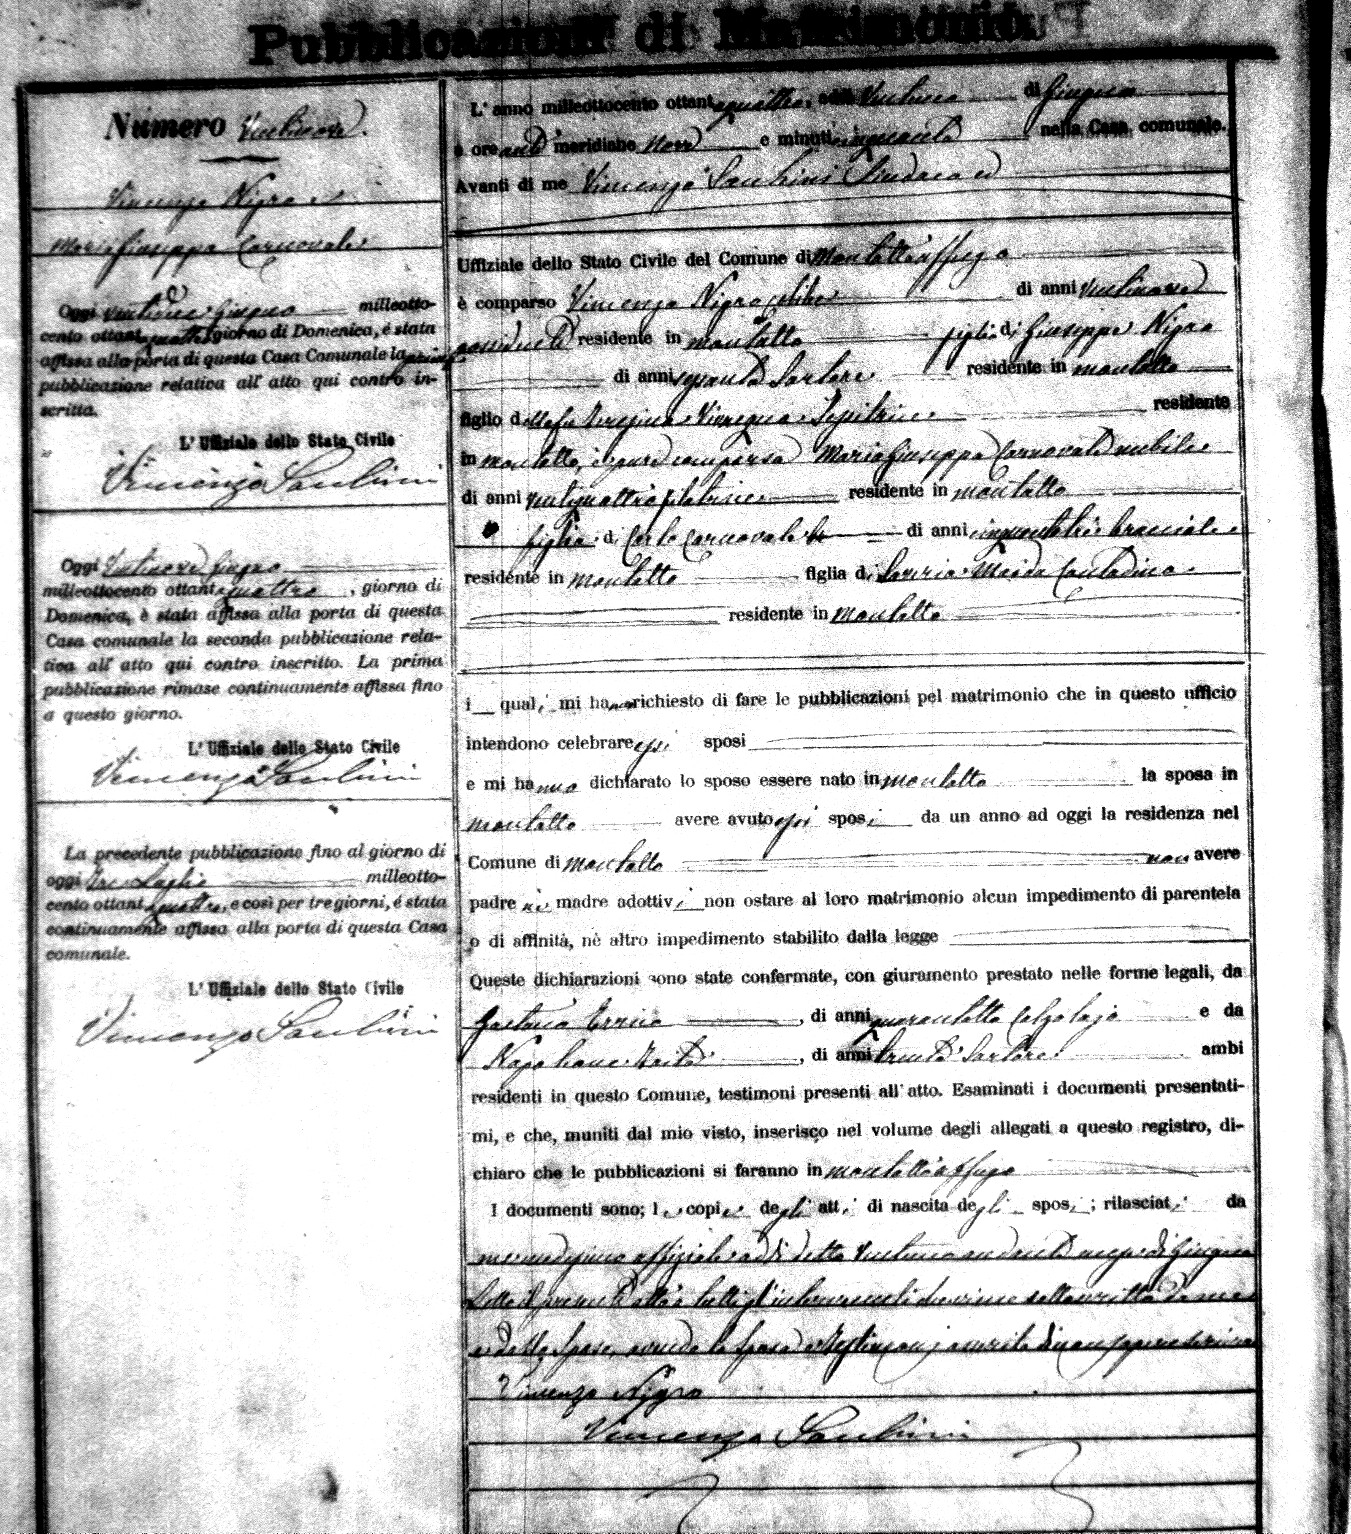 Pubblicazioni di Matrimonio
Numero Ventinove
Vincenzo Nigro e
Maria Giuseppa Carnovale
Oggi ventidue Giugno milleotto-
cento ottantaquattro, giorno di Domenica, é stata
affissa alla porta di questa Casa Comunale la prima
pubblicazione relativa all' atto qui contro in-
scritta.
L' Uffiziale dello Stato Civile
Vincenzo
Oggi Ventinove Giugno
milleottocento ottantaquattro, giorno di
Domenica, è stata affissa alla porta di questa
Casa comunale la seconda pubblicazione rela-
tiva all' atto qui contro inscritto. La prima
pubblicazione rimase continuamente affissa fino
a questo giorno.
L' Uffiziale dello Stato Civile
Vincenzo
La precedente pubblicazione fino al giorno di
oggi tre Luglio milleotto-
cento ottantaquattro, e così per tre giorni, é stata
continuamente affissa alla porta di questa Casa
comunale.
L' Uffiziale dello Stato Civile
Vincenzo
L' anno milleottocento ottantaquattro, addì Ventuno di Giugno
a ore anti meridiane nove e minuti cinquanta nella Casa comunale.
Avanti di me Vincenzo Sindaco ed
Uffiziale dello Stato Civile del Comune di Montalto Uffugo
è comparso Vincenzo Nigro celibe di anni ventinove
residente in Montalto figlio di Giuseppe Nigro
di anni sessanta Sartore residente in Montalto
figlio della fu Teresina residente
in Montalto, è pure comparsa Maria Giuseppa Carnovale nubile
di anni ventiquattro filatrice residente in Montalto
figlia di Carlo Carnovale di anni cinquantatre bracciale
residente in Montalto figlia di Saveria Maida Contadina
residente in Montalto
i quali mi hanno richiesto di fare le pubblicazioni pel matrimonio che in questo ufficio
intendono celebrare essi sposi
e mi hanno dichiarato lo sposo essere nato in Montalto la sposa in
Montalto avere avuto essi sposi da un anno ad oggi la residenza nel
Comune di Montalto non avere
padre ni madre adottivi non ostare al loro matrimonio alcun impedimento di parentela
o di affinità, nè altro impedimento stabilito dalla legge
Queste dichiarazioni sono state confermate, con giuramento prestato nelle forme legali, da
Gaetano Errico, di anni quarantotto Calzolajo e da
Napoleone, di anni trenta Sartore ambi
residenti in questo Comune, testimoni presenti all' atto. Esaminati i documenti presentati-
mi, e che, muniti dal mio visto, inserisco nel volume degli allegati a questo registro, di-
chiaro che le pubblicazioni si faranno in Montalto Uffugo
I documenti sono; le copie degli atti di nascita degli sposi; rilasciati da
me medesimo uffiziale addì detto Ventuno andante mese di Giugno
Letto il presente atto a tutti gl'intervenuti viene sottoscritto da me
e dallo sposo, avendo la sposa e testimonj asserito di non sapere scrivere
Vincenzo Nigro
Vincenzo